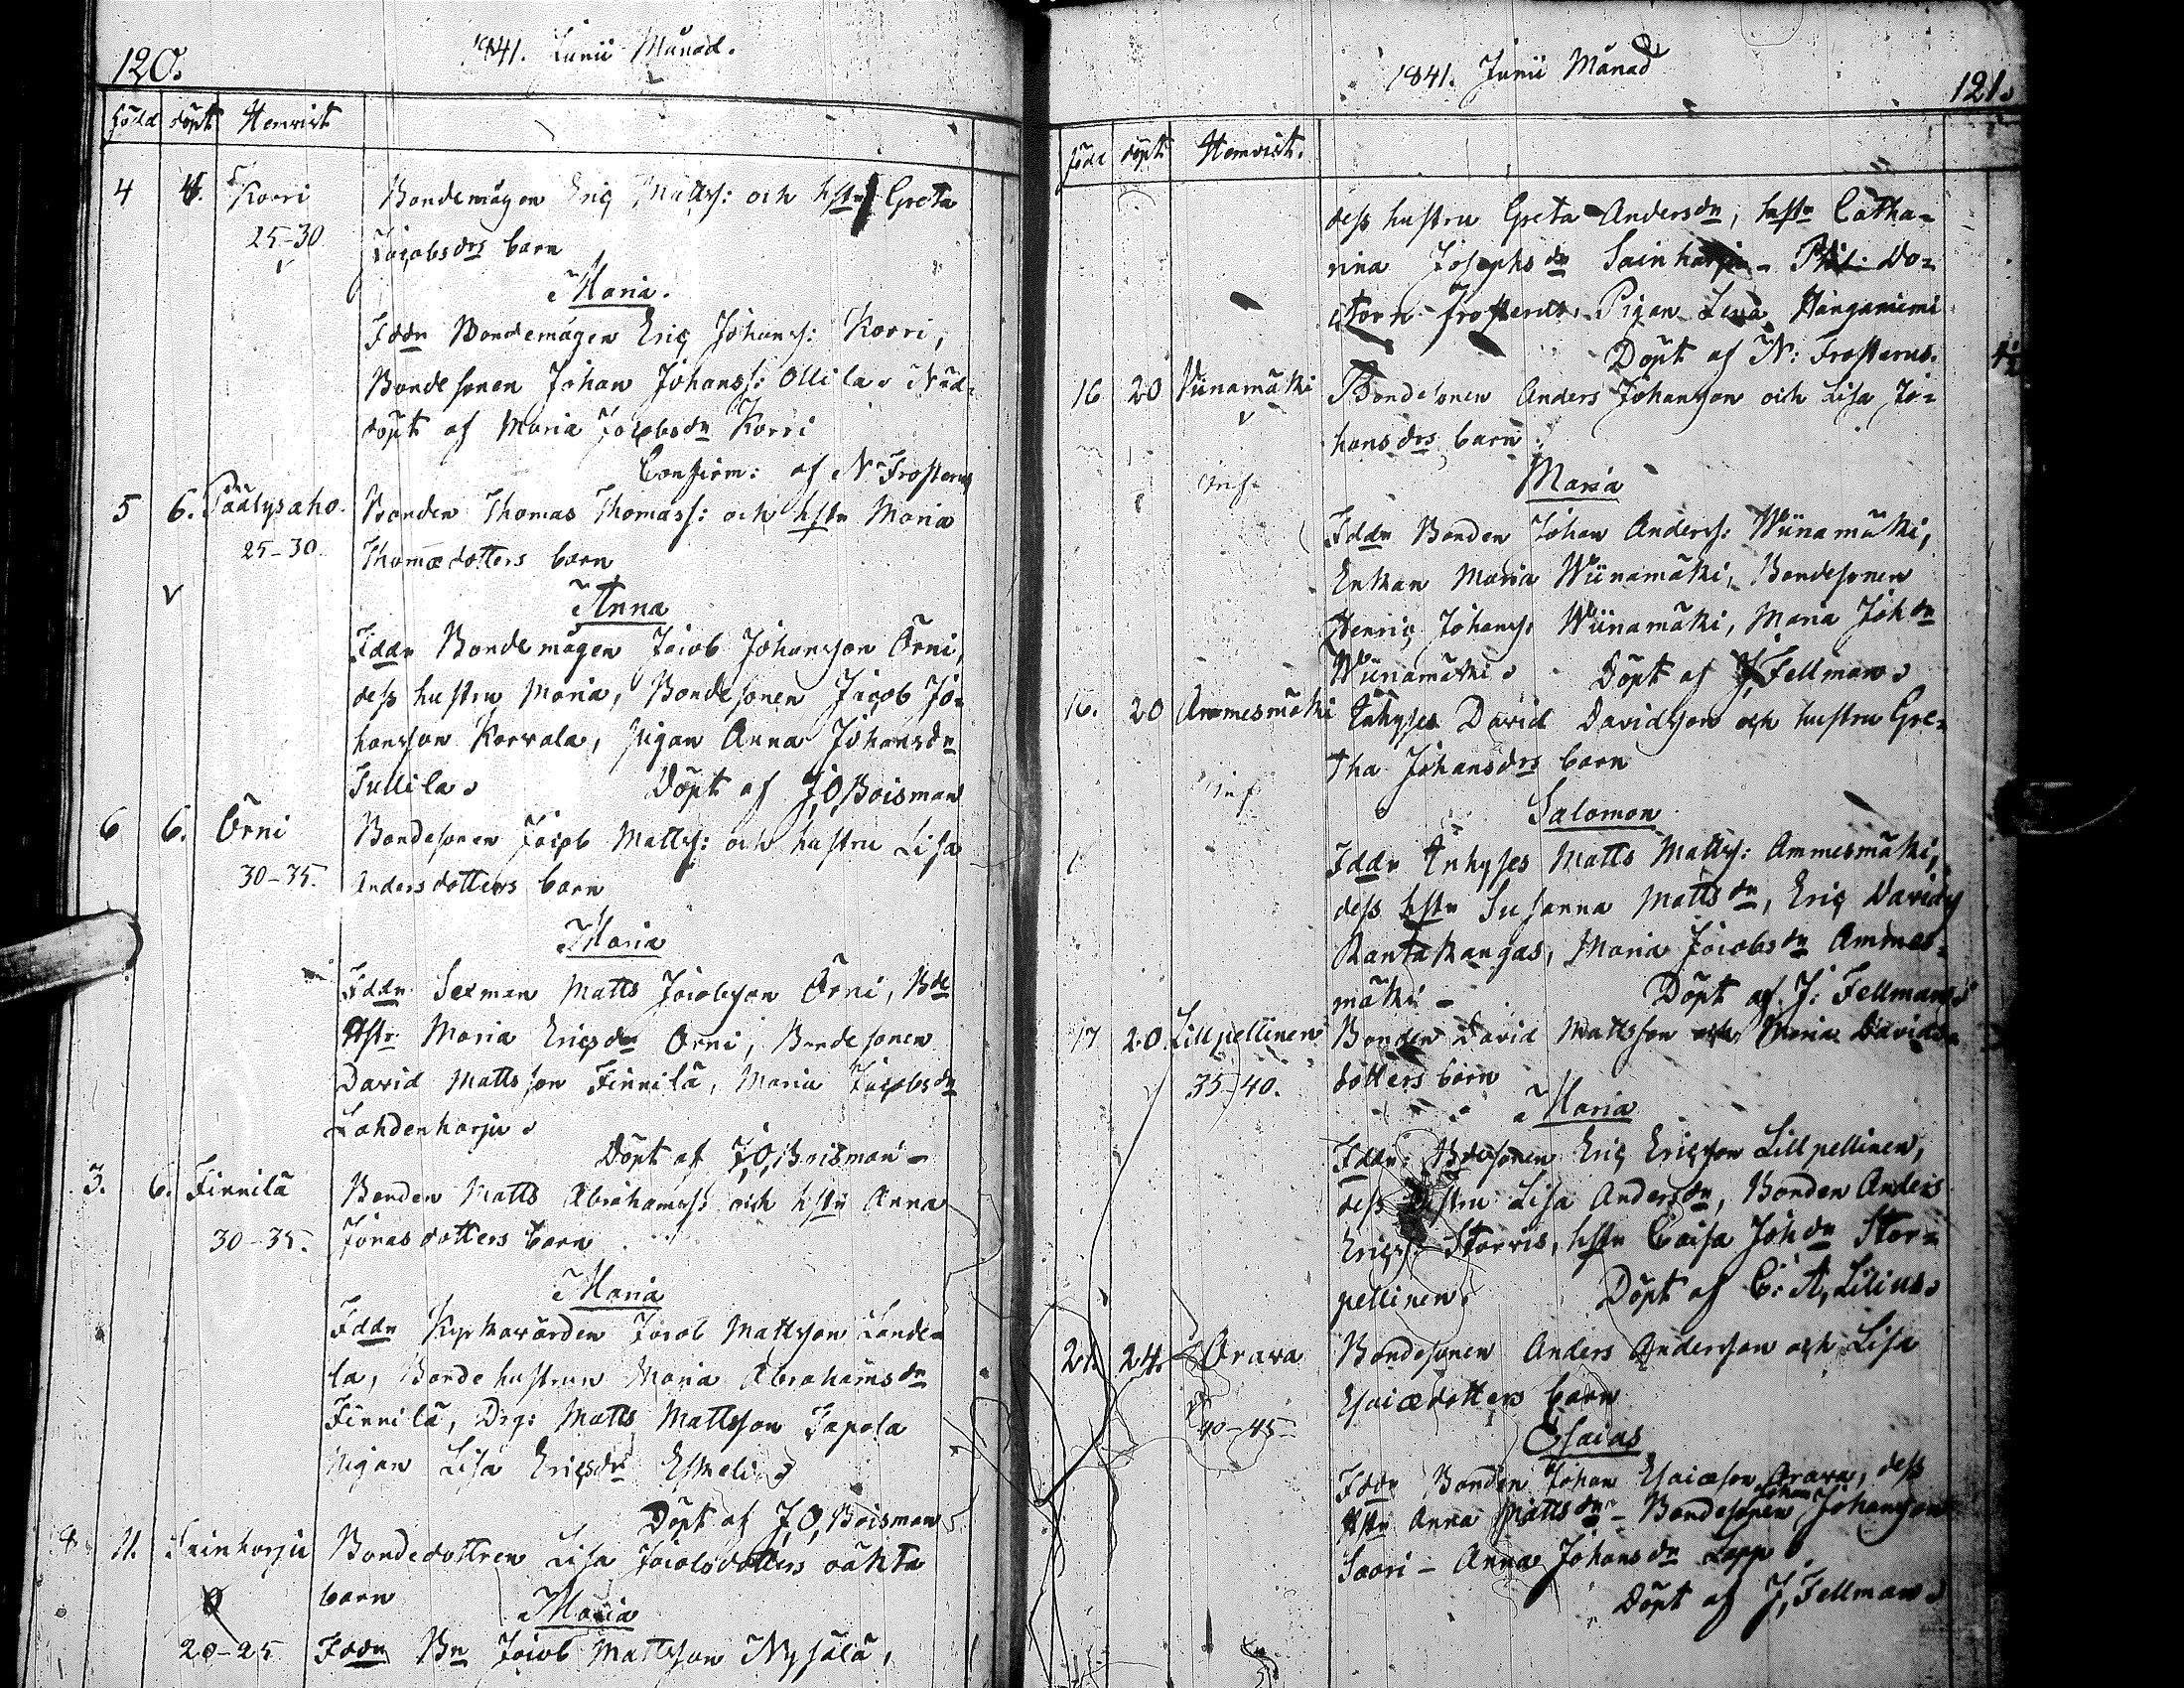 120.
1841. Junii Månad.
född döpt Hemvist
4 4. Korri Bondemågen Eriç Mattss: och hstr Greta
25-30 Jacobsdrs barn
Maria.
Fddr Bondemågen Eriç Johanss: Korri,
Bondesonen Johan Johanss: Ollila. Nöd-
döpt af Maria Jacobsdr Korri
Confirm: af N Frosterus
5 6. Päätysaho. Bonden Thomas Thomass: och hstr Maria
25-30. Thomædotters barn
Anna
Fddr Bondemågen Jacob Johansson Örni,
dess hustru Maria, Bondesonen Jacob Jo-
hansson Korvala, pigan Anna Johansdr
Jullila. Döpt af J, O, Boisman
6 6. Örni Bondesonen Jacob Mattss: och hustru Lisa
30-35. Andersdotters barn
Maria
Fddr Sexman Matts Jacobsson Örni, Bde
Hstr Maria Ericsdr Örni, Bondesonen
David Mattsson Finnilä, Maria Jacobsdr
Lahdenharju.
Döpt af J, O, Boisman-
3. 6. Finnilä Bonden Matts Abrahamss: och hstr Anna
30-35. Jonasdotters barn
Maria
Fddr Kyrkovärden Jacob Mattsson Lande-
la, Bondehustrun Maria Abrahamsdr
Finnilä, Drg: Matts Mattsson Japola
pigan Lisa Ericsdr Eskeli.
Döpt af J, O, Boisman
8 11. Sainharju Bondedottren Lisa Jacobsdotters oäkta
barn
Maria
20-25 Fddr Bn Jacob Mattsson Nysälä,
1841. Junii Månad
121.
född döpt Hemvist.
dess hustru Greta Andersdr, hstr Catha-
rina Josephsdr Sainharju - Phil: Do-
ctorn Frosterus, Pigan Lena Hanganiemi
Döpt af N: Frosterus.
16 20 Viinamäki Bondesonen Anders Johansson och Lisa Jo-
hansdrs barn
Maria
Fddr Bonden Johan Anderss: Wiinamäki,
Enkan Maria Wiinamäki, Bondesonen
Henriç Johanss: Wiinamäki, Maria Johdr
Wiinamäki. Döpt af J, Fellman.
16. 20 Ammesmäki Inhyses David Davidsson och hustru Gre-
tha Johansdrs barn
Salomon
Fddr Inhyses Matts Mattss: Ammesmäki,
dess hstr Susanna Mattsdr, Eriç Davidss
Rantakangas, Maria Jacobsdr Ammes-
mäki - Döpt af J: Fellman.
17 20. Lillpellinen Bonden David Mattsson och Maria Davids-
35-40. dotters barn
Maria
Fddr: Bdesonen Eriç Ericsson Lillpellinen,
dess hustru Lisa Andersdr, Bonden Anders
Ericss: Storris, hstr Caisa Johdr Stor-
pellinen. Döpt af C. A, Lilius.
21. 24. Orava Bondesonen Anders Andersson och Lisa
Esaiædotters barn
40-45 Esaias
Fddr Bonden Johan Esaiæson Orava, dess
Hstr Anna Mattsdr - Bondesonen Johan Johansson
Saari - Anna Johansdr Lapp.
Döpt af J, Fellman.